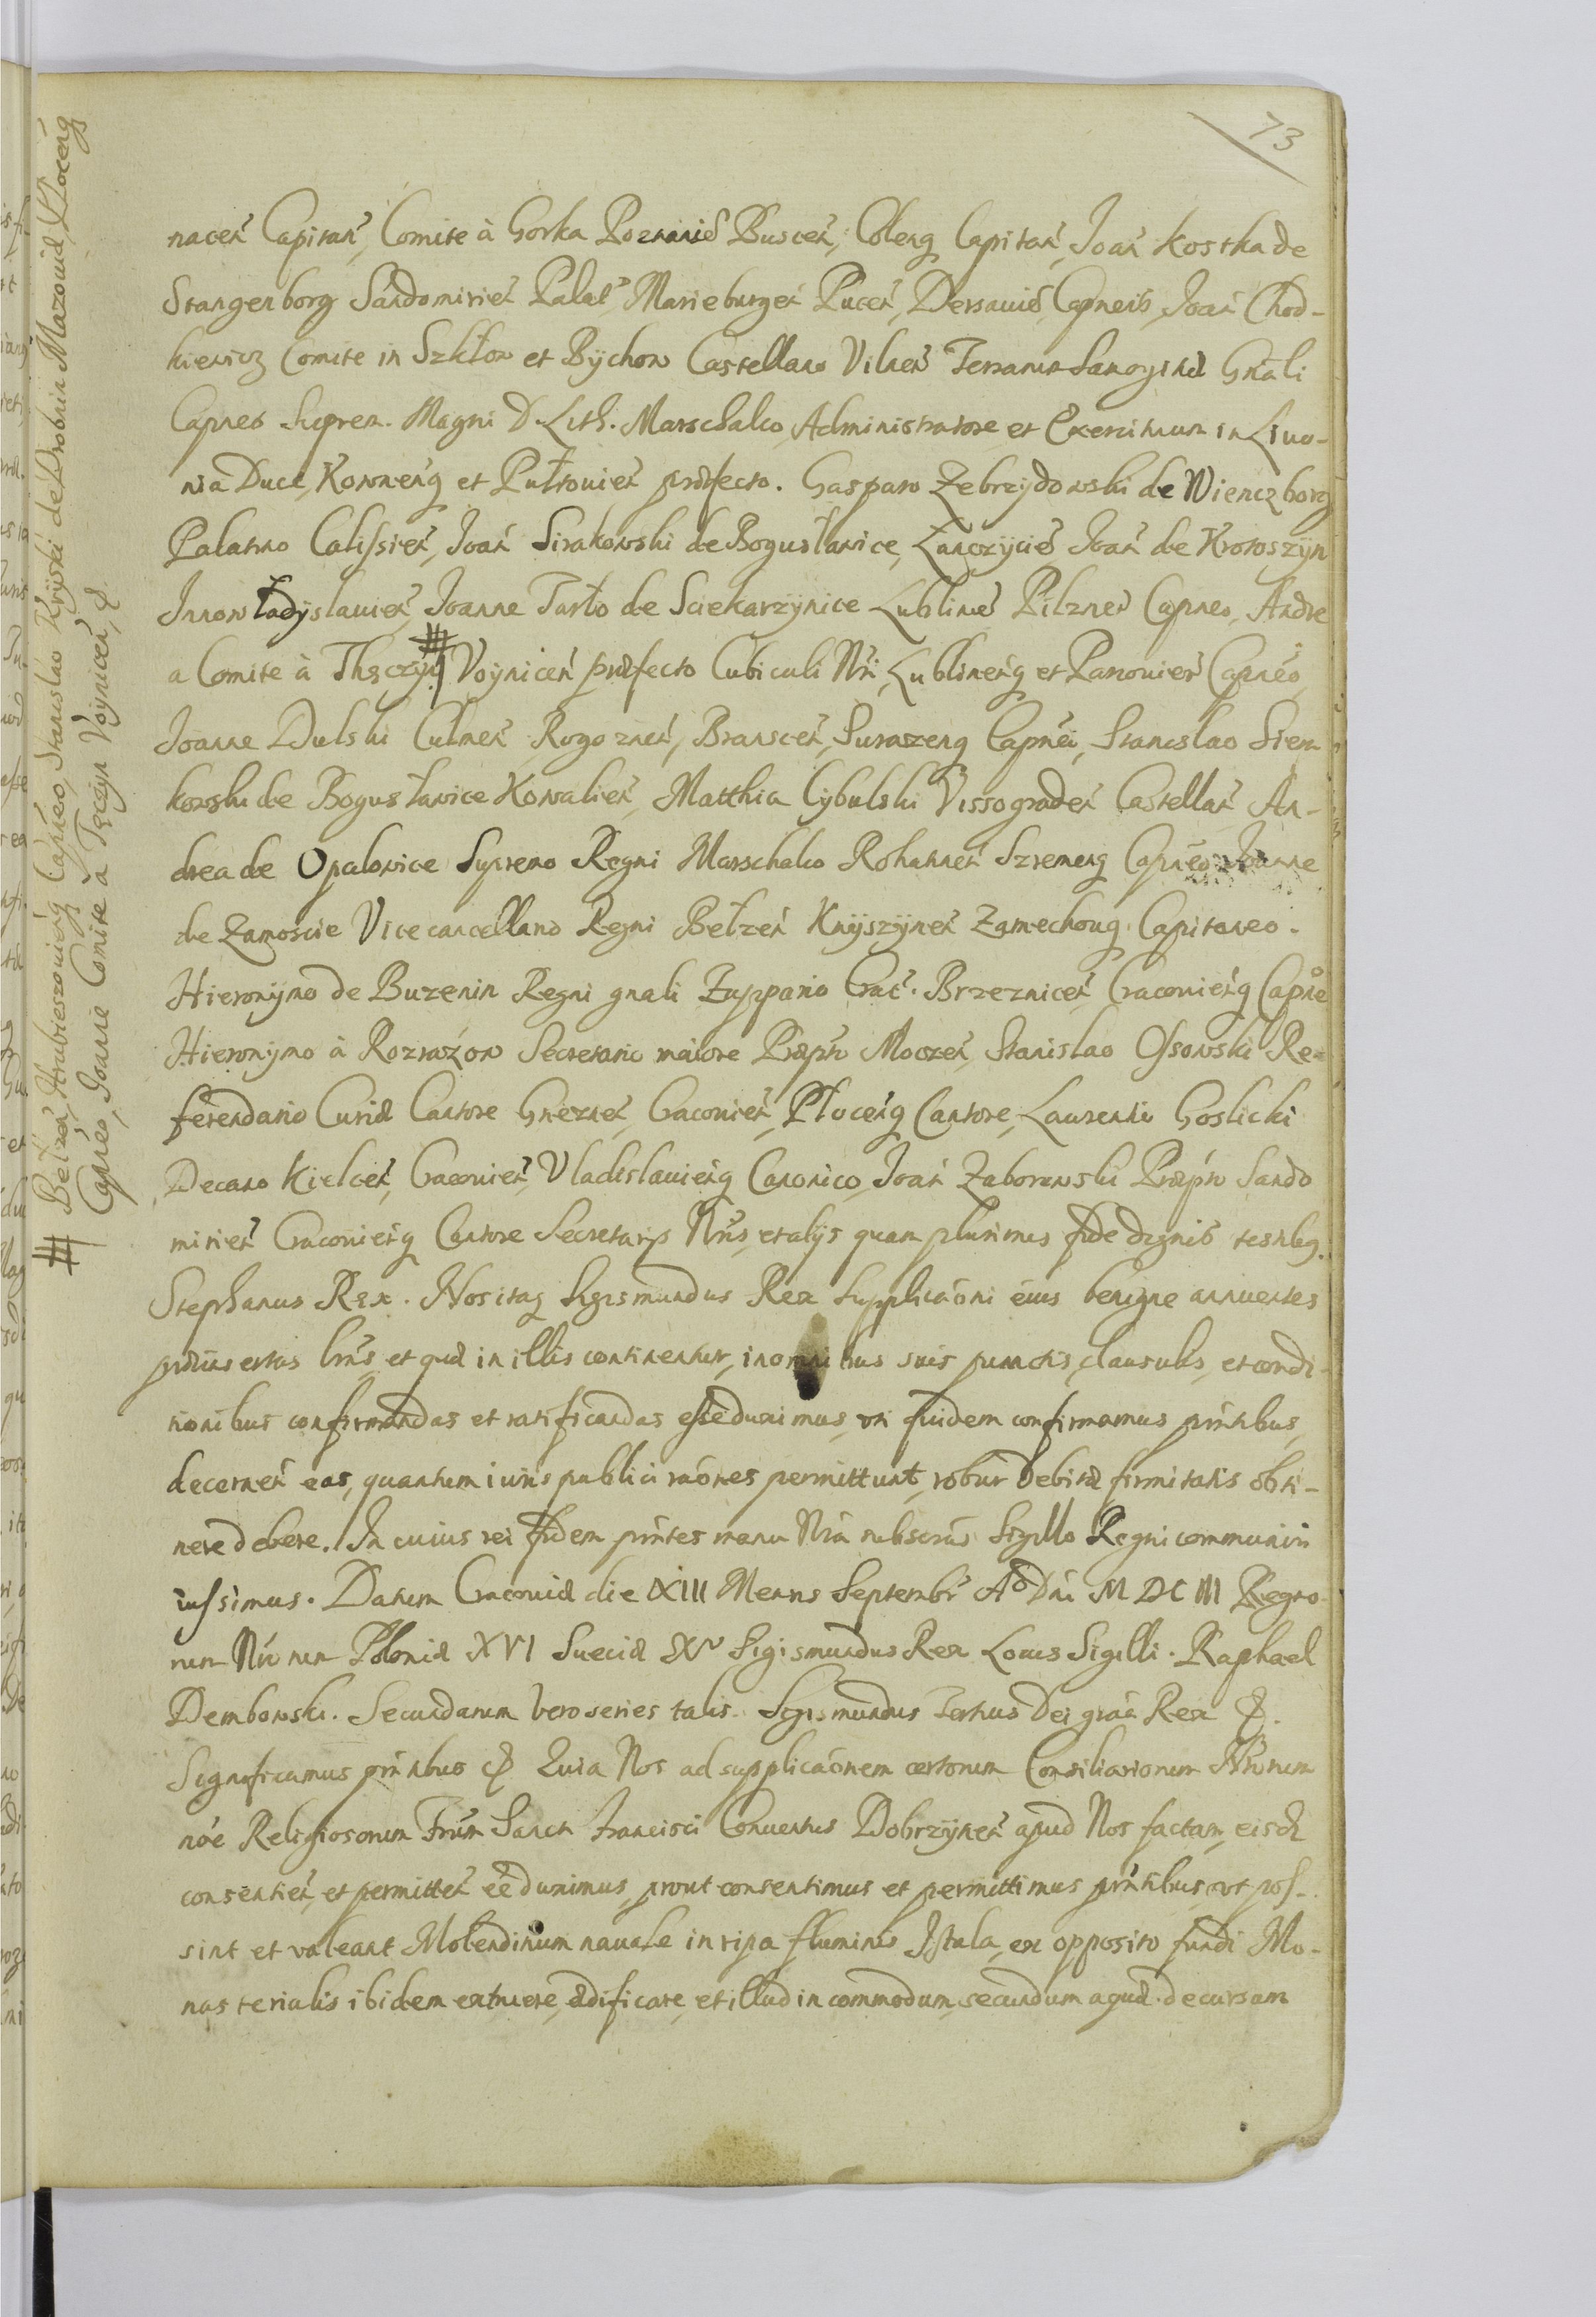 73
nacen̄ Capitan̄, Comite à Gorka Poznaniē Buscen̄, Colenq̨ Capitan̄, Joan̄ Kostka de
Stangenborg Sandomirien̄ Palat̄, Marieburgen̄ Pucen̄, Dersaviē, Capneis, Joan̄ Chod-
kiewicz Comite in Szkłow et Bychow Castellano Vilnen̄ Terrarum Samogitiæ Gn̄ali
Capneo Suprem. Magni D. Lith. Marschalco, Administratore et Exercituum in Livo-
nia Duce, Kownenq̨ et Płutovien̄ præfecto. Gasparo Zebrzydowski de Wienczborg
Palatino Calissien̄, Joan̄ Sirakowski de Bogusławice, Lanczyciē Joan̄ de Krotoszyn
Innowładyslavien̄, Joanne Tarło de Sciekarzynice Lublinē Pilznen̄ Capneo, Andre
a Comite à Thęczyn # Voynicen̄ præfecto Cubiculi Nr̄i, Lublinenq̨ et Parcovien̄ Capnēo,
Joanne Dulski Culmen̄ Rogoznen̄, Branscen̄, Surazenq̨ Capnēi, Stanislao Siera
kowski de Bogusławice Kowalien̄, Matthia Cybulski Vissograden̄ Castellan̄ An-
drea de Opalonice Supremo Regni Marschalco Rohatinen̄ Szremenq̨ Capnēo Joanne
de Zamoście Vicecancellario Regni Bełzen̄ Knyszynen̄ Zamechouq̨ Capitaneo.
Hieronymo de Buzenin Regni gnali Zuppario Crac̄. Brzeznicen̄, Cracovienq̨ Capnēo
Hieronymo à Rozrażow Secretario maiore Præpt̄o Moczen̄, Stanislao Ossowski Re-
ferendario Curiæ Cantore Gneznen̄, Cracovien̄, Płocenq̨ Cantore, Laurentio Goslicki
Decano Kielcen̄, Cracovien̄, Vladislavienq̨ Canonico, Joan̄ Zaborowski Præpt̄o Sando
mirien̄ Cracovienq̨ Cantore Secretarys Nr̄is, et alys quam plurimis fide dignis testibq̨.
Stephanus Rex. Nos itaq̨ Sigismundus Rex Supplicaōni eius benigne annuentes
præinsertas lr̄as, et quæ in illis continentur, in omnibus suis punctis, clausulis, et condi-
tionibus confirmandas et ratificandas esse duximus, uti quidem confirmamus pn̄tibus,
decernen̄ eas, quantum iuris publici raōnes permittunt, robur debitæ firmitatis obti-
nere debere. In cuius rei fidem pn̄tes manu Nr̄a subscr̄as Sigillo Regni communiri
iussimus. Datum Cracoviæ die XIII Mensis Septembr̄ A͞o Dn̄i M DC III Regno-
rum Nr̄orum Poloniæ XVI Sueciæ X͞o Sigismundus Rex Locus Sigilli. Raphael
Dembowski. Secundarum vero series talis. Sigismundus Tertius Dei gr̄aa Rex &.
Significamus pn̄tibus & Quia Nos ad supplicaōnem certorum Consiliariorum Nr̄orum
nōe Religiosorum Fr̄um Sancti Francisci Conventus Dobrzynen̄ apud Nos factam, eisdē
consentien̄, et permitten̄ eē duximus, prout consentimus et permittimus pn̄tibus, ut pos-
sint et valeant Molendinum navale in ripa fluminis Istula, ex opposito fundi Mo-
nasterialis ibidem extruere, ædificare, et illud in commodum, secundum aquæ decursum
# Bełzen̄, Hrubieszovienq̨ Capnēo, Stanislao Kryski de Drobnin Mazoviæ, Płocenq̨
Capnēo, Joanne Comite à Tęczyn Voynicen̄, &.